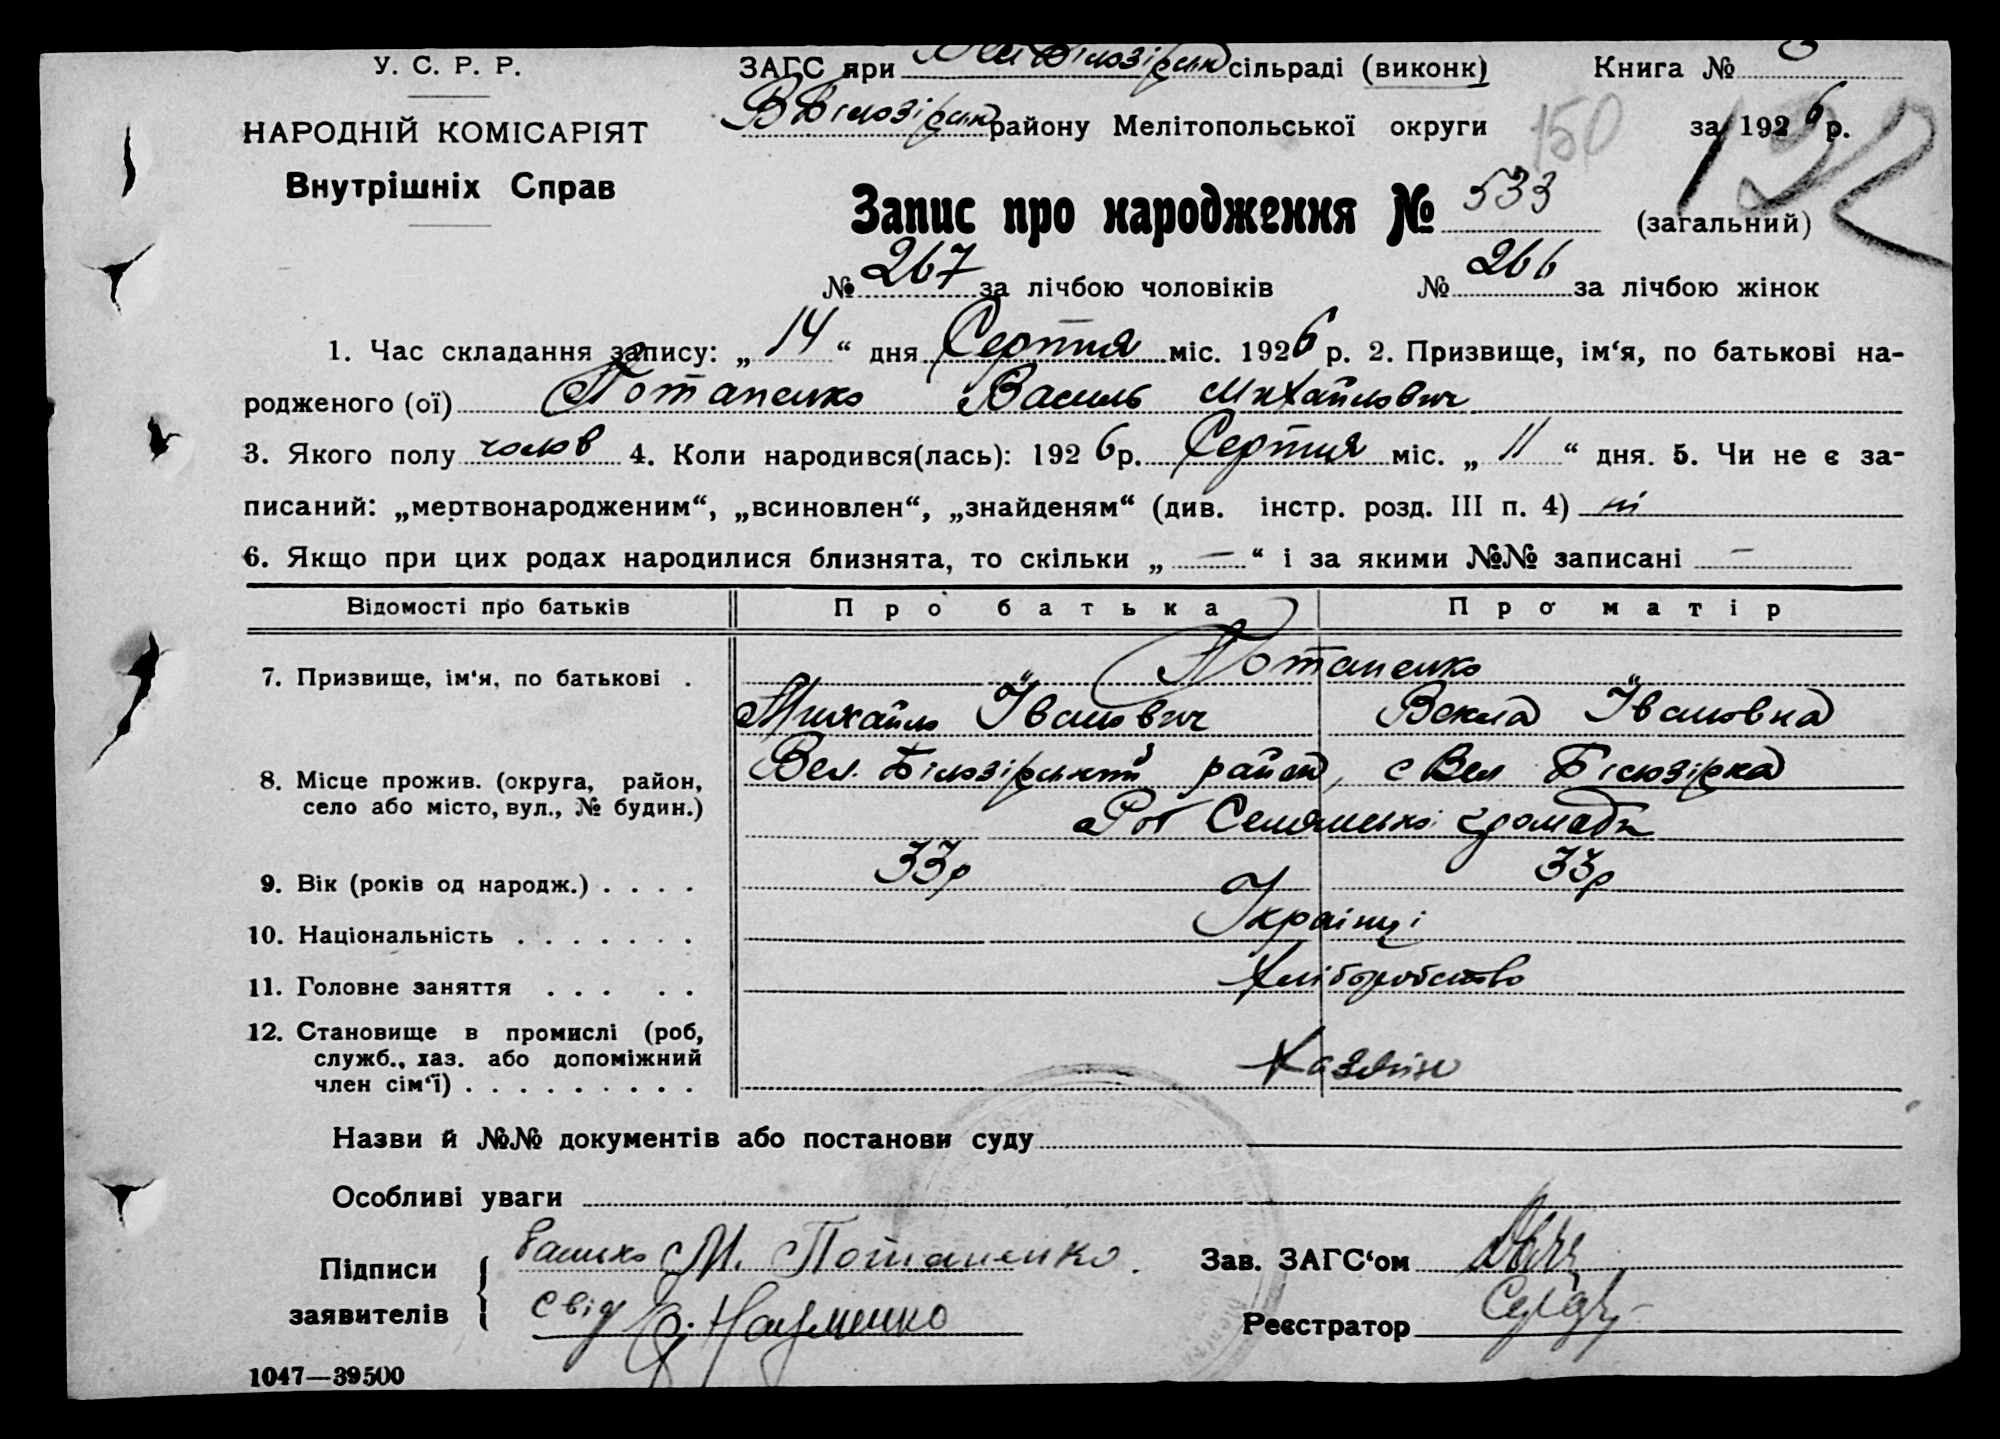 У. С. Р. Р.
НАРОДНІЙ КОМІСАРІЯТ
Внутрішніх Справ
ЗАГС при Вел Білозірськ сільраді (виконк)
Книга №
В Білозірськ району Мелітопольської округи
150
за 1926 р.
192
Запис про народження № 533 (загальний)
№ 267 за лічбою чоловіків № 266 за лічбою жінок
1. Час складання запису: „ 14 “ дня Серпня міс. 1926 р. 2. Призвище, ім‘я, по батькові на-
родженого (ої) Потапенко Василь Михайлович
3. Якого полу чолов 4. Коли народився(лась): 1926 р. Серпня міс. „ 11 “ дня. 5. Чи не є за-
писаний: „мертвонародженим“, „всиновлен“, „знайденям“ (див. інстр. розд. III п. 4) ні
6. Якщо при цих родах народилися близнята, то скільки „ — “ і за якими №№ записані —
Відомості про батьків Про батька Про матір
7. Призвище, ім‘я, по батькові . Потапенко
Михайло Іванович Векла Івановна
8. Місце прожив. (округа, район, село або місто, вул., № будин.) Вел. Білозірський район, с Вел Білозірка
Рог Семянської громади
9. Вік (років од народж.) . . . . 33р 33р
10. Національність . . . . . . . Українці
11. Головне заняття . . . . . Хліборобство
12. Становище в промислі (роб, служб., хаз. або допоміжний член сім‘ї) . . . . . . . . . Хазяїн
Назви й №№ документів або постанови суду
Особливі уваги
Підписи заявителів { батько М. Потапенко.
свід Науменко
Зав. ЗАГС‘ом
Реєстратор
1047—39500